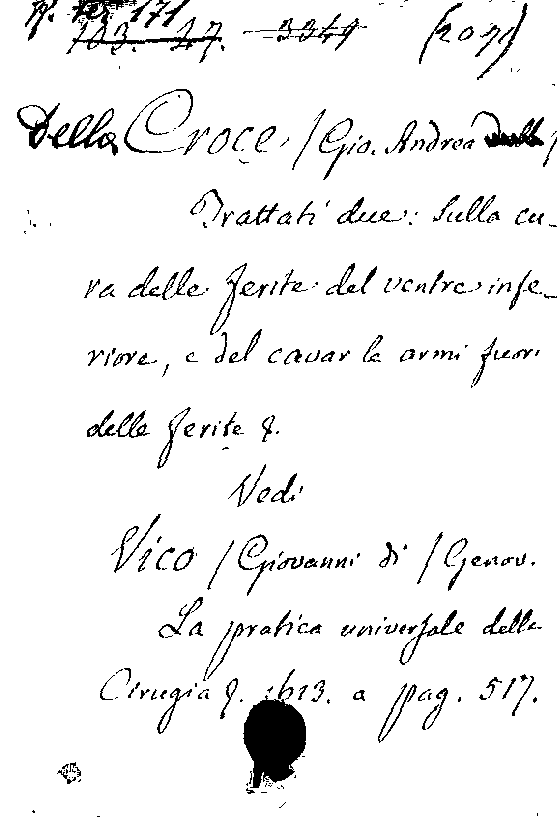 171
103. 27. 3349 (2071)
Della Croce, / Gio. Andrea /
Trattati due: Sulla cu-
ra delle ferite del ventre infe-
riore, e del cavar le armi fuori
delle ferite &.
Vedi
Vico / Giovanni di / Genov.
La pratica universale della
Cirugia &. 1613. a pag. 517.